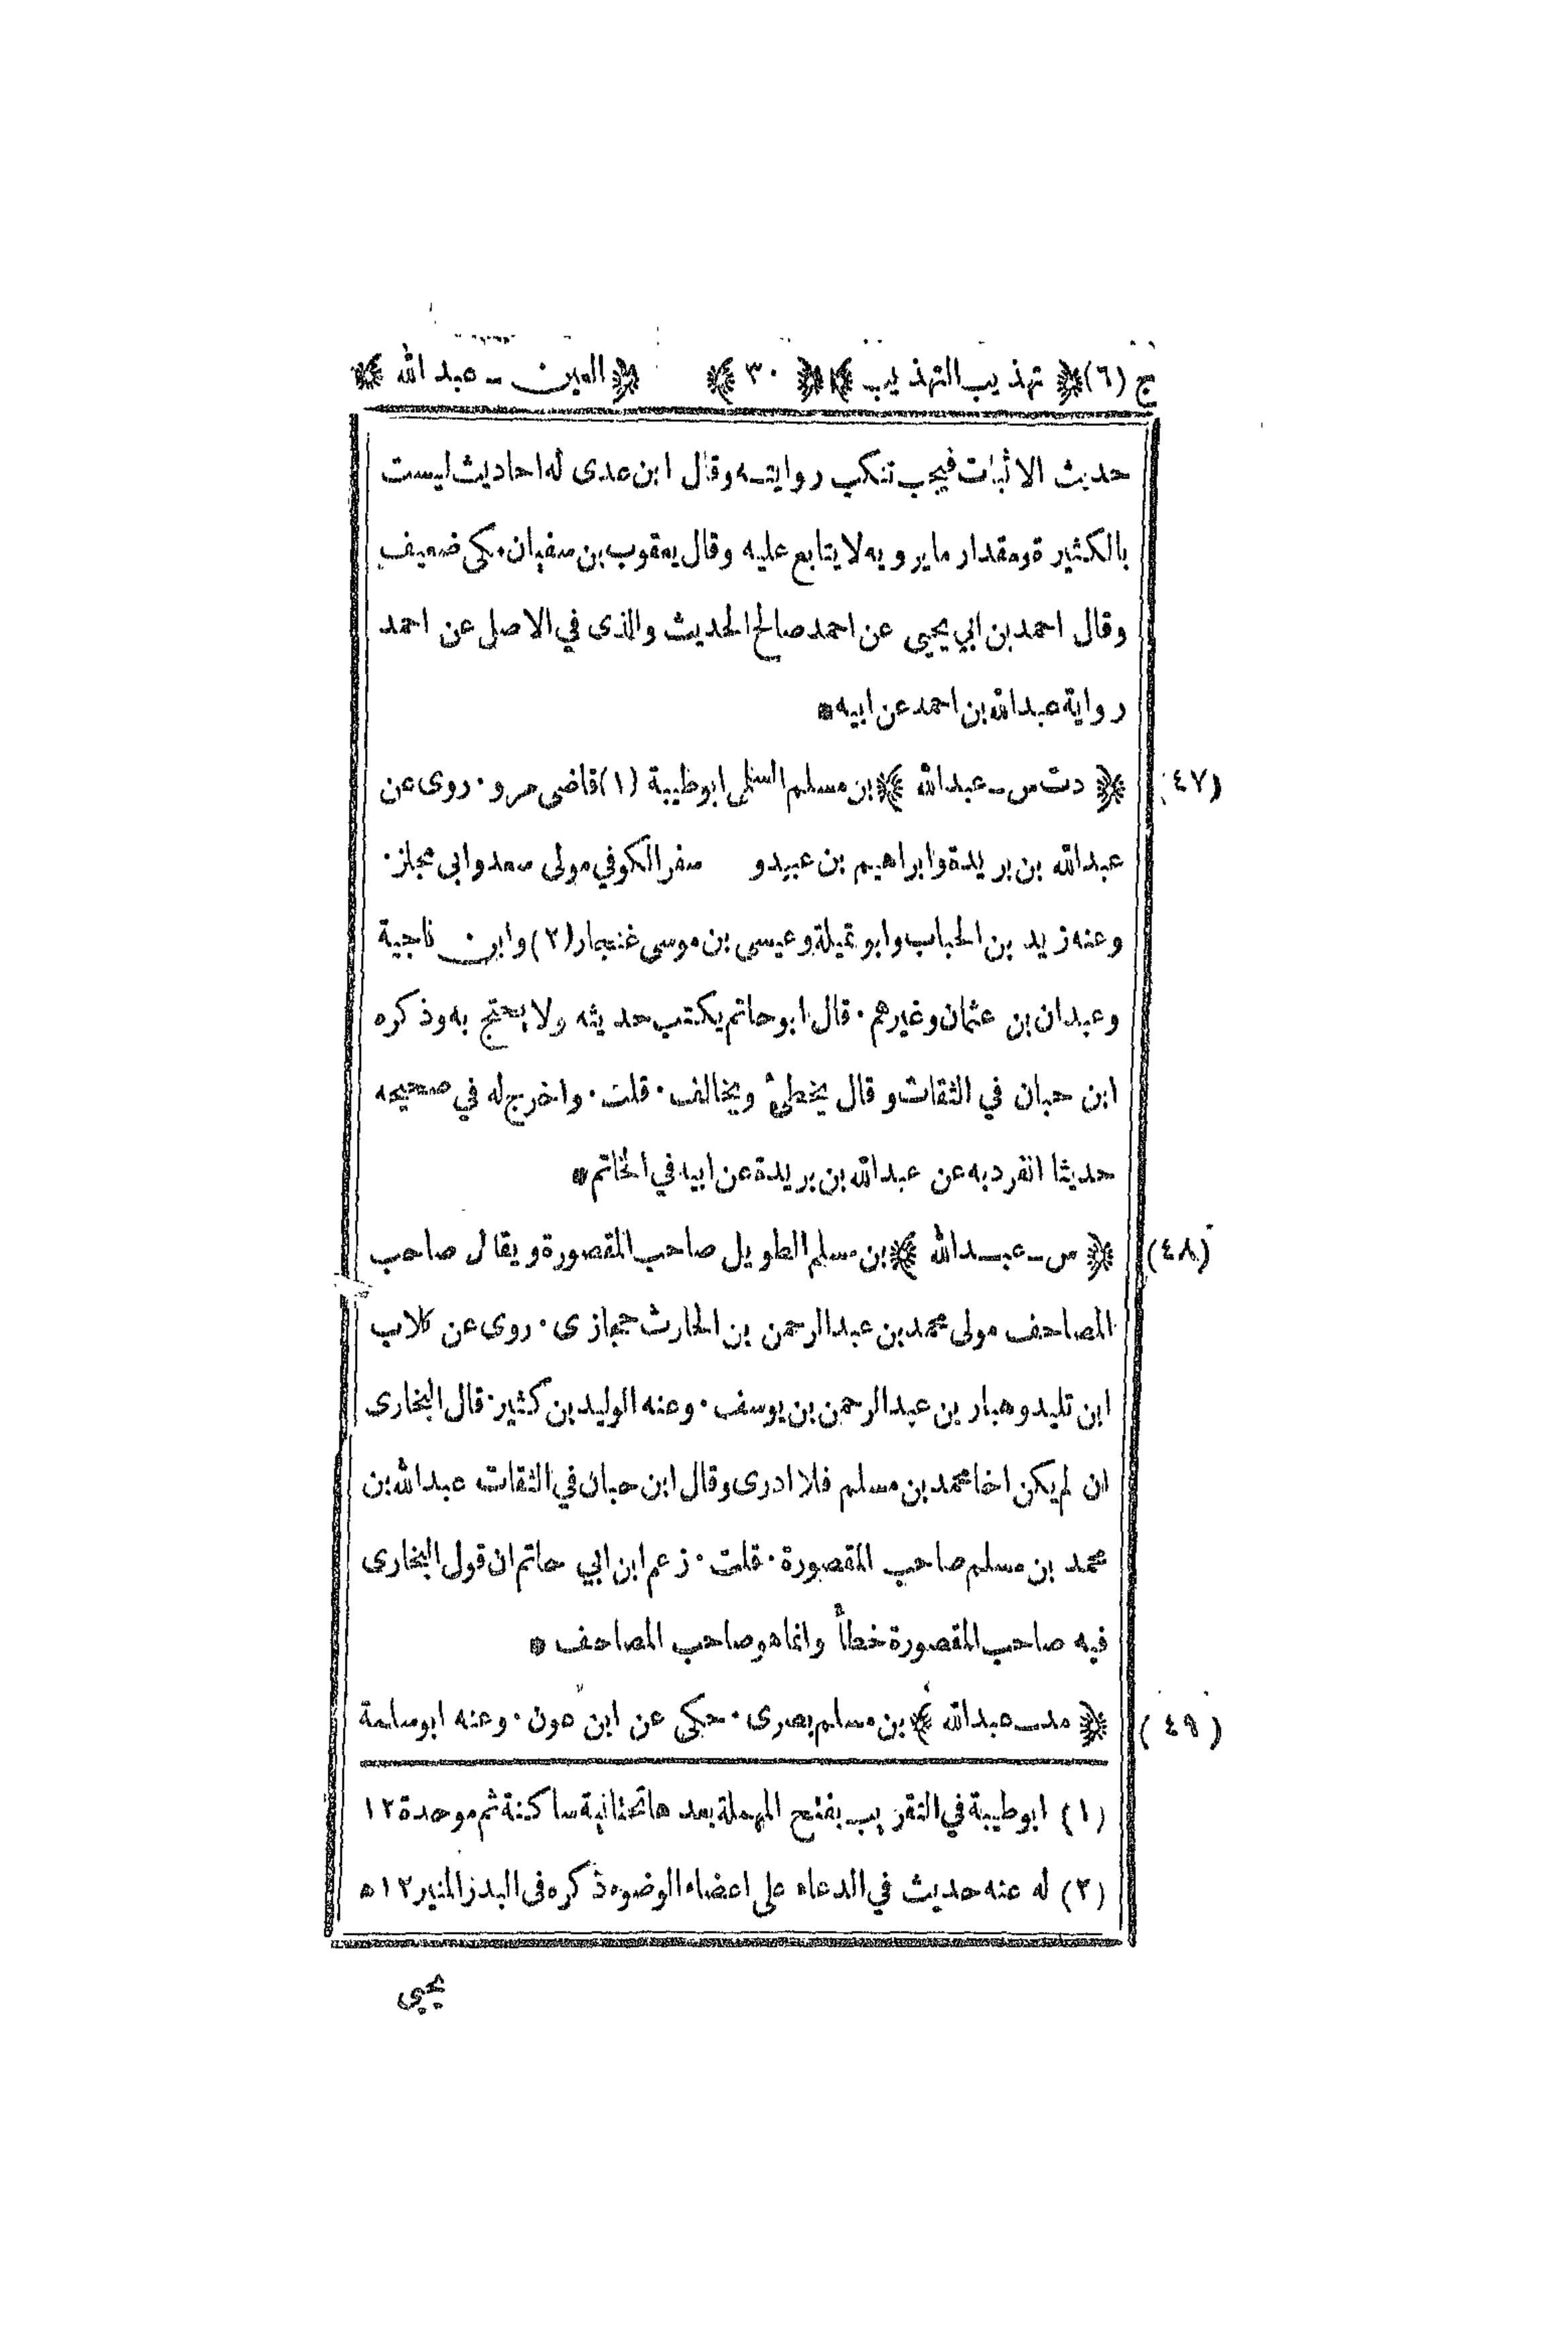 ج (٦) ﴿ تهذيب التهذيب ﴾ ﴿ ٣٠ ﴾ ﴿ العين ـ عبد الله ﴾
حديث الاثبات فيجب تنكب روايته وقال ابن عدى له احاديث ليست
بالكثيرة ومقدار ما يرويه لا يتابع عليه وقال يعقوب بن سفيان مكى ضعيف
وقال احمد بن ابي يحيى عن احمد صالح الحديث والذى في الاصل عن احمد
رواية عبدالله بن احمد عن ابيه *
(٤٧) ﴿ دت س ـ عبدالله ﴾ بن مسلم السلمى ابوطيبة (١) قاضى مرو ٠ روى عن
عبدالله بن بريدة وابراهيم بن عبيد و صفر الكوفي مولى سعد وابى مجلز ٠
وعنه زيد بن الحباب وابو تميلة وعيسى بن موسى غنجار (٢) وابن ناجية
وعبدان بن عثمان وغيرهم ٠ قال ابو حاتم يكتب حديثه ولا يحتج به وذكره
ابن حبان في الثقات وقال يخطئ ويخالف ٠ قلت ٠ واخرج له في صحيحه
حديثا انفرد به عن عبدالله بن بريدة عن ابيه في الخاتم *
(٤٨) ﴿ س ـ عبدالله ﴾ بن مسلم الطويل صاحب المقصورة ويقال صاحب
المصاحف مولى محمد بن عبدالرحمن بن الحارث حجازى ٠ روى عن كلاب
ابن تليد وهبار بن عبدالرحمن بن يوسف ٠ وعنه الوليد بن كثير ٠ قال البخارى
ان لم يكن اخا محمد بن مسلم فلا ادرى وقال ابن حبان في الثقات عبدالله بن
محمد بن مسلم صاحب المقصورة ٠ قلت ٠ زعم ابن ابي حاتم ان قول البخارى
فيه صاحب المقصورة خطأ وانما هو صاحب المصاحف *
(٤٩) ﴿ مد ـ عبدالله ﴾ بن مسلم بصرى ٠ حكى عن ابن عون ٠ وعنه ابوسلمة
(١) ابوطيبة في التقريب بفتح المهملة بعدها تحتانية ساكنة ثم موحدة ١٢
(٢) له عنه حديث في الدعاء على اعضاء الوضوء ذكره فى البدر المنير ١٢ ه
يحيى